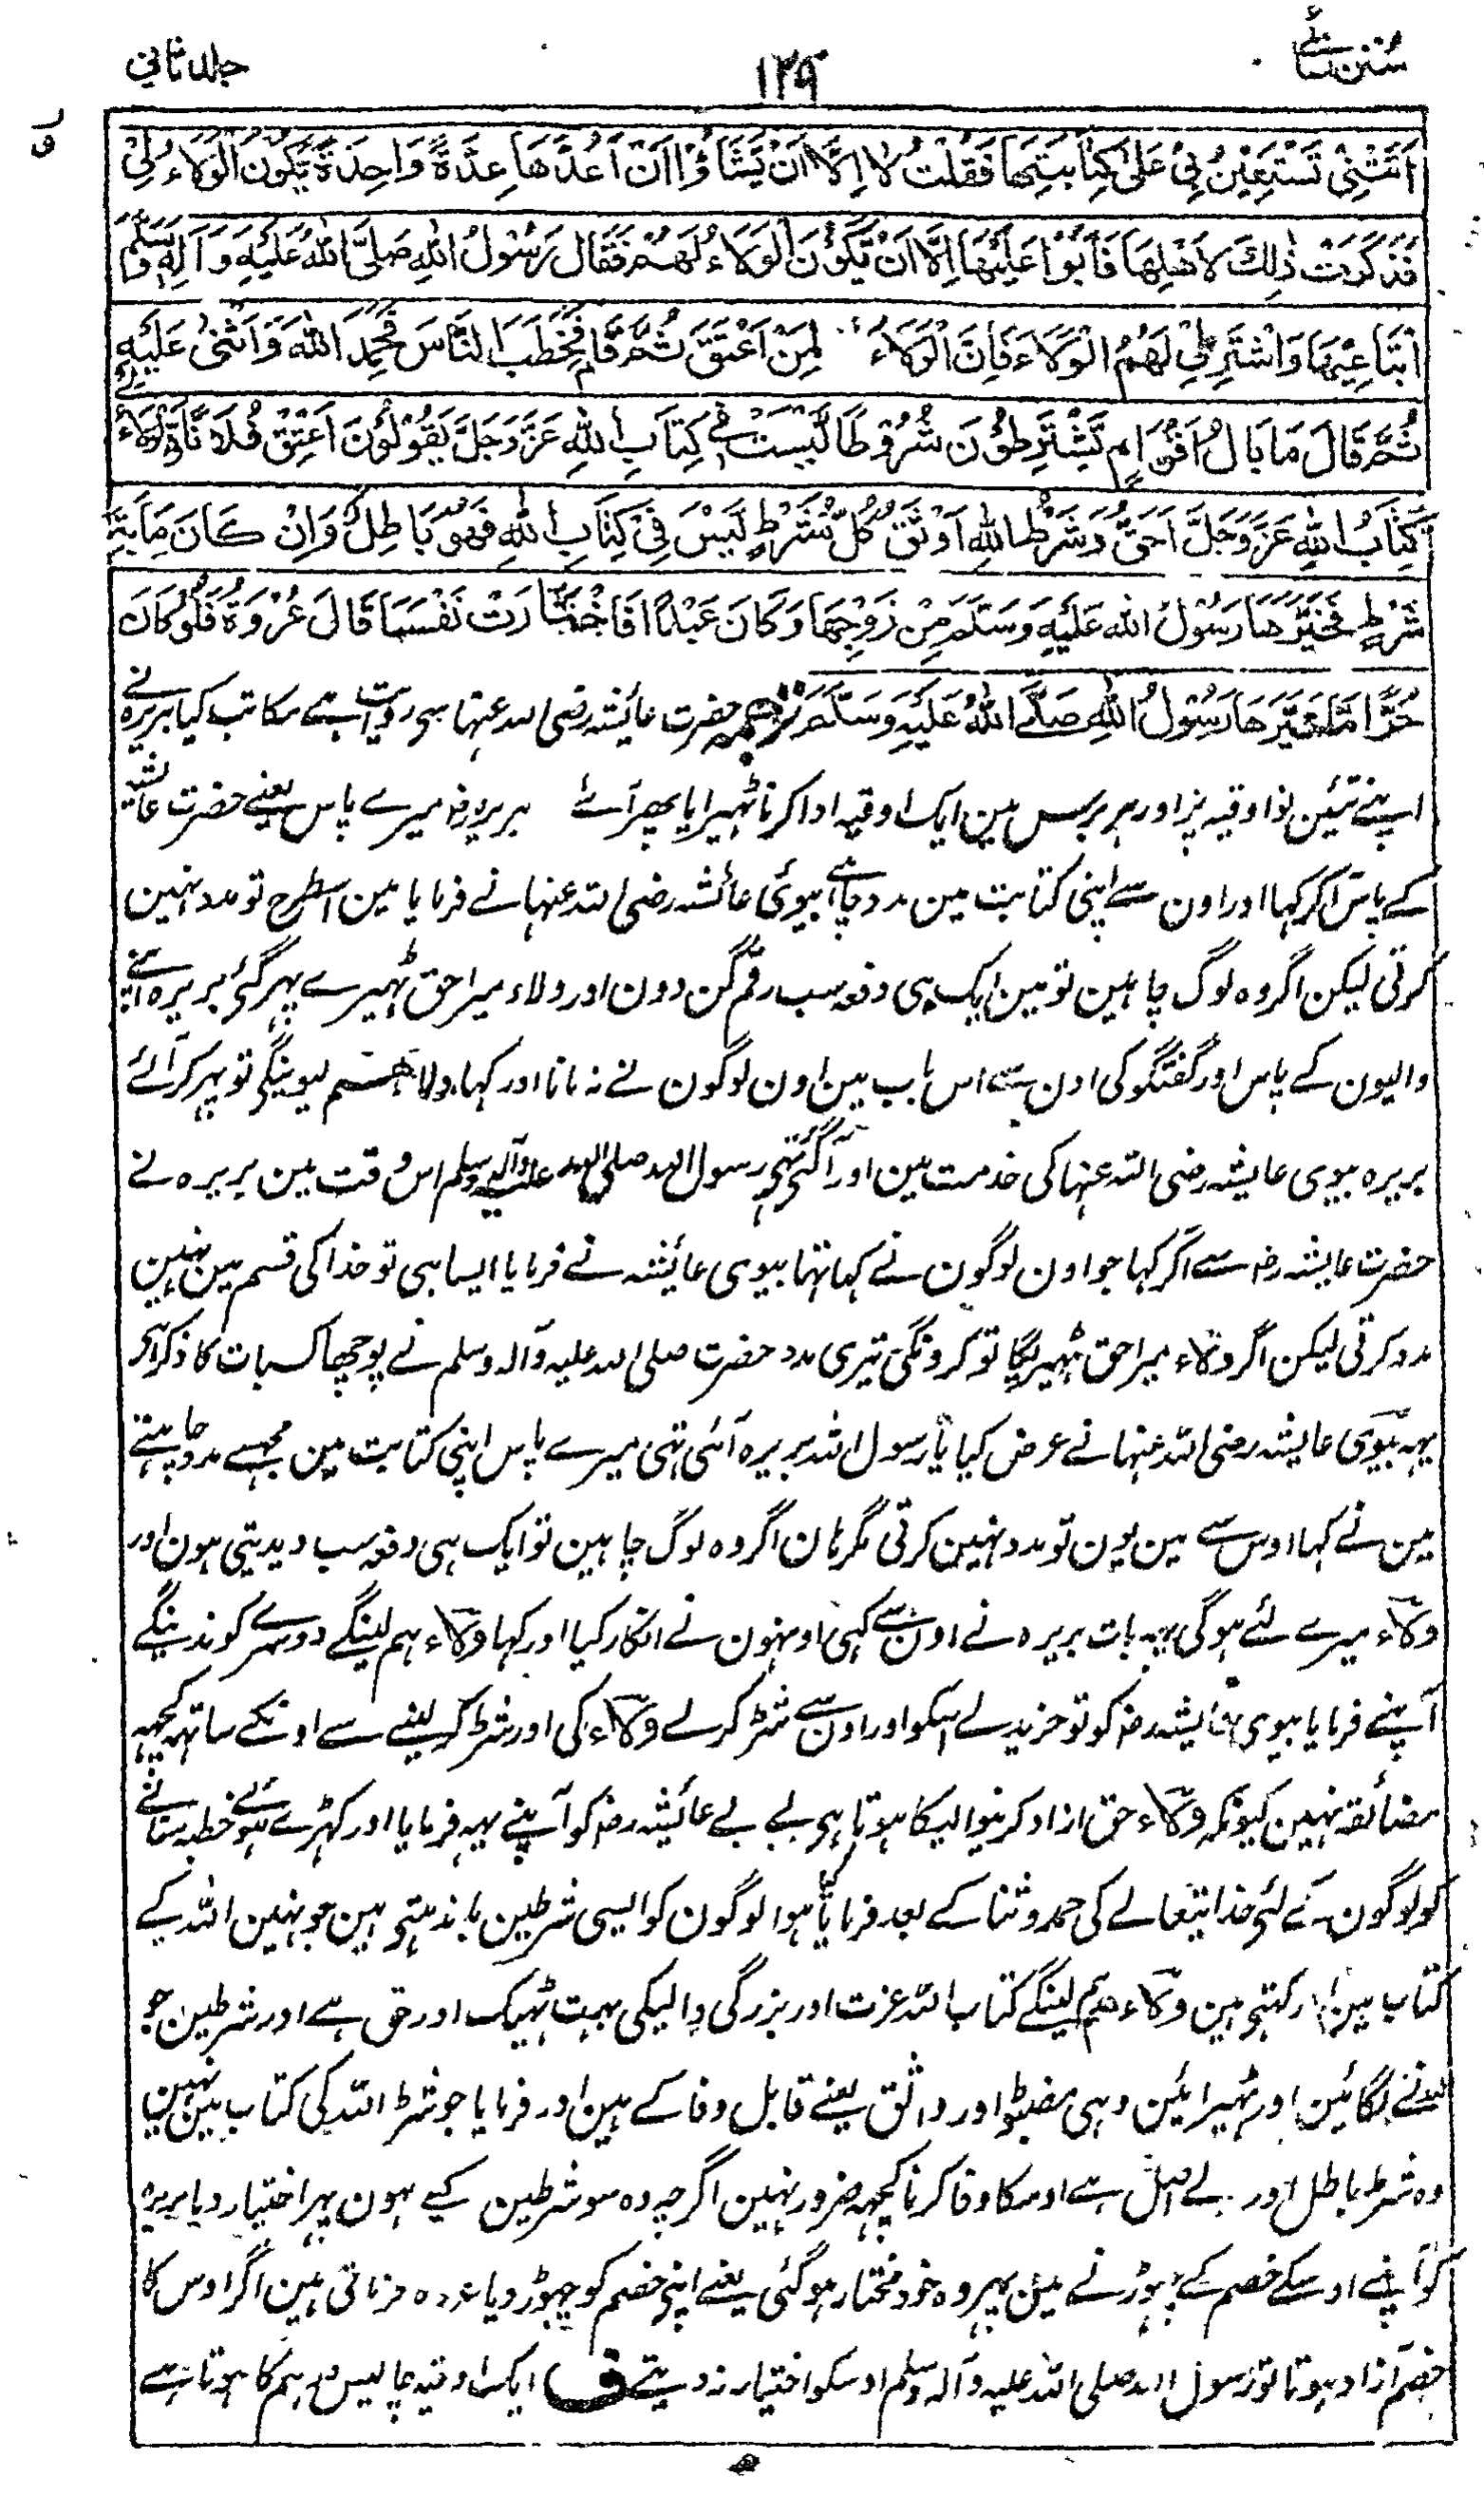 سُنن نسائے
۱۲۹
جلد ثانی
اَتَتْنِیْ تَسْتَعِیْنُ بِیْ عَلیٰ کِتَابَتِهَا فَقُلْتُ لَا اِلَّا اَنْ یَّشَاؤُا اَنْ اَعُدَّهَا عِدَّةً وَاحِدَةً یَّکُوْنُ الْوَلَاءُ لِیْ
فَذَکَرَتْ ذٰلِکَ لِاَهْلِهَا فَاَبَوْا عَلَیْهَا اِلَّا اَنْ یَّکُوْنَ الْوَلَاءُ لَهُمْ فَقَالَ رَسُوْلُ اللهِ صَلَّی اللهُ عَلَیْهِ وَ اٰلِهٖ وَسَلَّمَ
ابْتَاعِیْهَا وَاشْتَرِطِیْ لَهُمُ الْوَلَاءَ فَاِنَّ الْوَلَاءَ لِمَنْ اَعْتَقَ ثُمَّ قَامَ فَخَطَبَ النَّاسَ فَحَمِدَ اللهَ وَاَثْنیٰ عَلَیْهِ
ثُمَّ قَالَ مَا بَالُ اَقْوَامٍ یَّشْتَرِطُوْنَ شُرُوْطًا لَّیْسَتْ فِیْ کِتَابِ اللهِ عَزَّ وَجَلَّ یَقُوْلُوْنَ اَعْتِقْ فُلَانًا وَّالْوَلَاءُ لِیْ
کِتَابُ اللهِ عَزَّ وَجَلَّ اَحَقُّ وَشَرْطُ اللهِ اَوْثَقُ کُلُّ شَرْطٍ لَیْسَ فِیْ کِتَابِ اللهِ فَهُوَ بَاطِلٌ وَاِنْ کَانَ مِایَةَ
شَرْطٍ فَخَیَّرَهَا رَسُوْلُ الله عَلَیْهِ وَسَلَّمَ مِنْ زَوْجِهَا وَکَانَ عَبْدًا فَاخْتَارَتْ نَفْسَهَا قَالَ عُرْوَةُ فَلَوْ کَانَ
حُرًّا مَّا خَیَّرَهَا رَسُوْلُ اللهِ صَلَّی اللهُ عَلَیْهِ وَسَلَّمَ ترجمہ حضرت عائیشہ رضی اللہ عنہا سی روایت ہے مکاتب کیا بریرہ نے
اپنے تئین نو اوقیہ پر اور ہر برس مین ایک اوقیہ ادا کرنا ٹہیرایا پھر آئے بریرہ رضہ میرے پاس یعنے حضرت عائشہ
کے پاس آ کر کہا اور اون سے اپنی کتابت مین مدد چاہے بیوی عائشہ رضی اللہ عنہا نے فرمایا مین اسطرح تو مدد نہین
کرتی لیکن اگر وہ لوگ چاہین تو مین ایک ہی دفعہ سب رقم گن دون اور ولاء میرا حق ٹہیرے پہر گئی بریرہ اپنے
والیون کے پاس اور گفتگو کی اون سے اس باب مین اون لوگون نے نہ مانا اور کہا ولا ہم لیوینگی تو پہر کر آئے
بریرہ بیوی عایشہ رضی اللہ عنہا کی خدمت مین اور آ گئی تہی رسول اللہ صلی اللہ علیہ وآلہ وسلم اس وقت مین بریرہ نے
حضرت عایشہ رضہ سے آکر کہا جو اون لوگون نے کہا تہا بیوی عائیشہ نے فرمایا ایسا ہی تو خدا کی قسم مین نہین
مدد کرتی لیکن اگر ولاء میرا حق ٹہیریگا تو کرونگی تیری مدد حضرت صلی اللہ علیہ وآلہ وسلم نے پوچھا کسبات کا ذکر ہی
یہہ بیوی عایشہ رضی اللہ عنہا نے عرض کیا یا رسول اللہ بریرہ آئی تہی میرے پاس اپنی کتابت مین مجہسے مدد چاہتے
مین نے کہا اوس سے مین یون تو مدد نہین کرتی مگر ہان اگر وہ لوگ چاہین تو ایک ہی دفعہ سب دیدیتی ہون اور
ولاء میرے لئے ہوگی یہہ بات بریرہ نے اون سے کہی اونہون نے انکار کیا اور کہا ولاء ہم لینگے دوسرے کو ندینگے
آپنے فرمایا بیوی عایشہ رضہ کو تو خرید لے اسکو اور اون سے شرط کر لے ولاء کی اور شرط کر لینے سے اونکے ساتہہ کچہہ
مضائقہ نہین کیونکہ ولاء حق آزاد کرنیوالیکا ہوتا ہی بے بے عائیشہ رضہ کو آپنے یہہ فرمایا اور کہڑے ہوئے خطبہ سنانے
کو لوگون کے لئی خدا یتعالے کی حمد و ثنا کے بعد فرمایا کیا ہوا لوگون کو ایسی شرطین باندہتی ہین جو نہین اللہ کے
کتاب مین اور کہتی ہین ولاء ہم لینگے کتاب اللہ عزت اور بزرگی والیکی بہت ٹہیک اور حق ہے اور شرطین جو
اوسنے لگائین اور ٹہیرائین وہی مضبوط اور واثق یعنے قابل وفا کے ہین اور فرمایا جو شرط اللہ کی کتاب مین نہین
وہ شرط باطل اور بے اصل ہے اوسکا وفا کرنا کچہہ ضرور نہین اگرچہ وہ سو شرطین کیے ہون پہر اختیار دیا بریرہ
کو آپنے اوسکے خصم کے چہوڑنے مین پہر وہ خود مختار ہوگئی یعنے اپنی خصم کو چہوڑ دیا عروہ فرماتی ہین اگر اوس کا
خصم آزاد ہوتا تو رسول اللہ صلی اللہ علیہ وآلہ وسلم اوسکو اختیار نہ دیتے ف ایک اوقیہ چالیس درہم کا ہوتا ہے